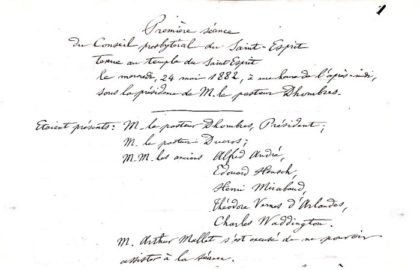 1
Première séance
du Conseil presbytéral du Saint-Esprit
tenue au temple du Saint Esprit
le mercredi, 24 mai 1882, à une heure de l'après-midi,
sous la présidence de M. le pasteur Dhombres.
Etaient présents : M. le pasteur Dhombres, Président ;
M. le pasteur Ducros ;
M.M. les anciens Alfred André,
Edouard Hentsch,
Henri Mirabaud,
Théodore Vernes d'Arlandes,
Charles Waddington.
M. Arthur Mallet s'est excusé de ne pouvoir
assister à la séance.